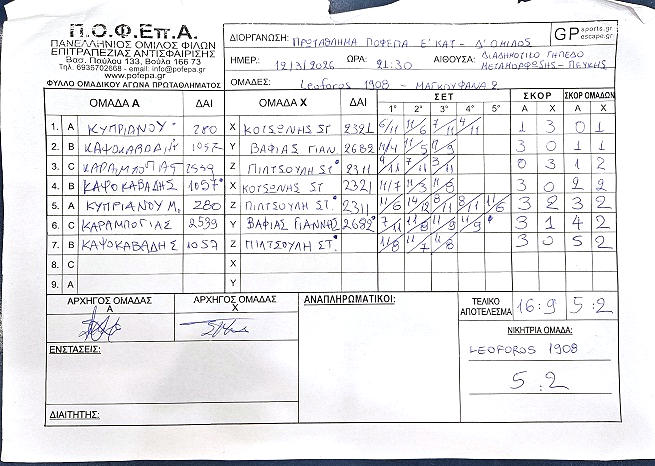 Π.Ο.Φ.Επ.Α.
ΠΑΝΕΛΛΗΝΙΟΣ ΟΜΙΛΟΣ ΦΙΛΩΝ
ΕΠΙΤΡΑΠΕΖΙΑΣ ΑΝΤΙΣΦΑΙΡΙΣΗΣ
Βασ. Παύλου 133, Βούλα 166 73
Τηλ. 6936702668 - email: info@pofepa.gr
www.pofepa.gr
ΦΥΛΛΟ ΟΜΑΔΙΚΟΥ ΑΓΩΝΑ ΠΡΩΤΑΘΛΗΜΑΤΟΣ
ΔΙΟΡΓΑΝΩΣΗ: ΠΡΩΤΑΘΛΗΜΑ ΠΟΦΕΠΑ Ε'ΚΑΤ - Δ'ΟΜΙΛΟΣ
GP sports.gr escape.gr
ΗΜΕΡ: 12/3/2026 ΩΡΑ: 21:30 ΑΙΘΟΥΣΑ: ΔΙΑΔΗΜΟΤΙΚΟ ΓΗΠΕΔΟ
ΜΕΤΑΜΟΡΦΩΣΗΣ - ΠΕΥΚΗΣ
ΟΜΑΔΕΣ: Leoforos 1908 - ΜΑΓΚΟΥΦΑΝΑ 2
ΟΜΑΔΑ Α ΔΑΙ ΟΜΑΔΑ Χ ΔΑΙ ΣΕΤ ΣΚΟΡ ΣΚΟΡ ΟΜΑΔΩΝ
1° 2° 3° 4° 5° Α Χ Α Χ
1. Α ΚΥΠΡΙΑΝΟΥ 280 Χ ΚΟΤΣΩΝΗΣ ΣΤ 2321 6/11 11/6 7/11 4/11 1 3 0 1
2. Β 1057 Υ ΒΑΦΙΑΣ ΓΙΑΝ 2682 3 0 1 1
3. C 2599 Ζ ΠΙΛΤΣΟΥΛΗ ΣΤ 2311 0 3 1 2
4. Β ΚΑΨΟΚΑΒΑΔΗΣ 1057 Χ ΚΟΤΣΩΝΗΣ ΣΤ 2321 11/7 3 0 2 2
5. Α ΚΥΠΡΙΑΝΟΥ Μ. 280 Ζ ΠΙΛΤΣΟΥΛΗ ΣΤ. 2311 11/6 14/12 8/11 8/11 11/6 3 2 3 2
6. C ΚΑΡΑΜΠΟΓΙΑΣ 2599 Υ ΒΑΦΙΑΣ ΓΙΑΝΝΗΣ 2682 7/11 11/8 11/9 11/9 3 1 4 2
7. Β ΚΑΨΟΚΑΒΑΔΗΣ 1057 Ζ ΠΙΛΤΣΟΥΛΗ ΣΤ. 11/8 11/7 11/8 3 0 5 2
8. C Χ
9. Α Υ
ΑΡΧΗΓΟΣ ΟΜΑΔΑΣ Α
ΑΡΧΗΓΟΣ ΟΜΑΔΑΣ Χ
ΑΝΑΠΛΗΡΩΜΑΤΙΚΟΙ:
ΤΕΛΙΚΟ ΑΠΟΤΕΛΕΣΜΑ 16:9 5:2
ΝΙΚΗΤΡΙΑ ΟΜΑΔΑ:
LEOFOROS 1908
5:2
ΕΝΣΤΑΣΕΙΣ:
ΔΙΑΙΤΗΤΗΣ: